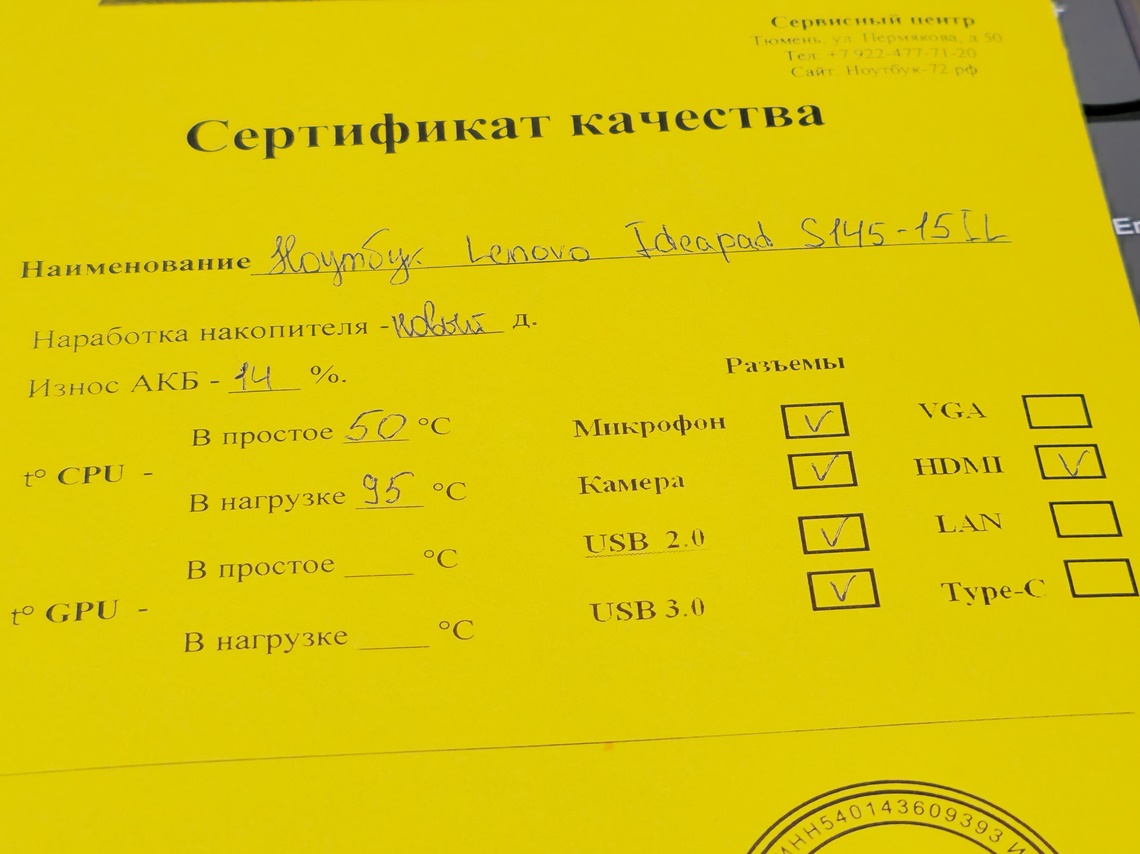 Сервисный центр
Тюмень, ул. Пермякова, д 50
Тел: +7 922-477-71-20
Сайт: Ноутбук-72 рф
Сертификат качества
Наименование Ноутбук Lenovo Ideapad S145-15IL
Наработка накопителя - новый д.
Износ АКБ - 14 %.
Разъемы
В простое 50 °C
t° CPU -
В нагрузке 95 °C
В простое ____ °C
t° GPU -
В нагрузке ____ °C
Микрофон V VGA
Камера V HDMI V
USB 2.0 V LAN
USB 3.0 V Type-C
ИНН540143609393